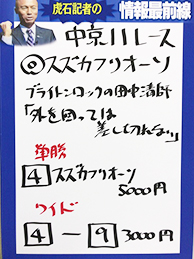 虎石記者の
情報最前線
中京11レース
◎スズカフリオーソ
ブライトンロックの田中清師
「外を回っては
差し切れない」
単勝
4 スズカフリオーソ
5000円
ワイド
4 - 9 3000円